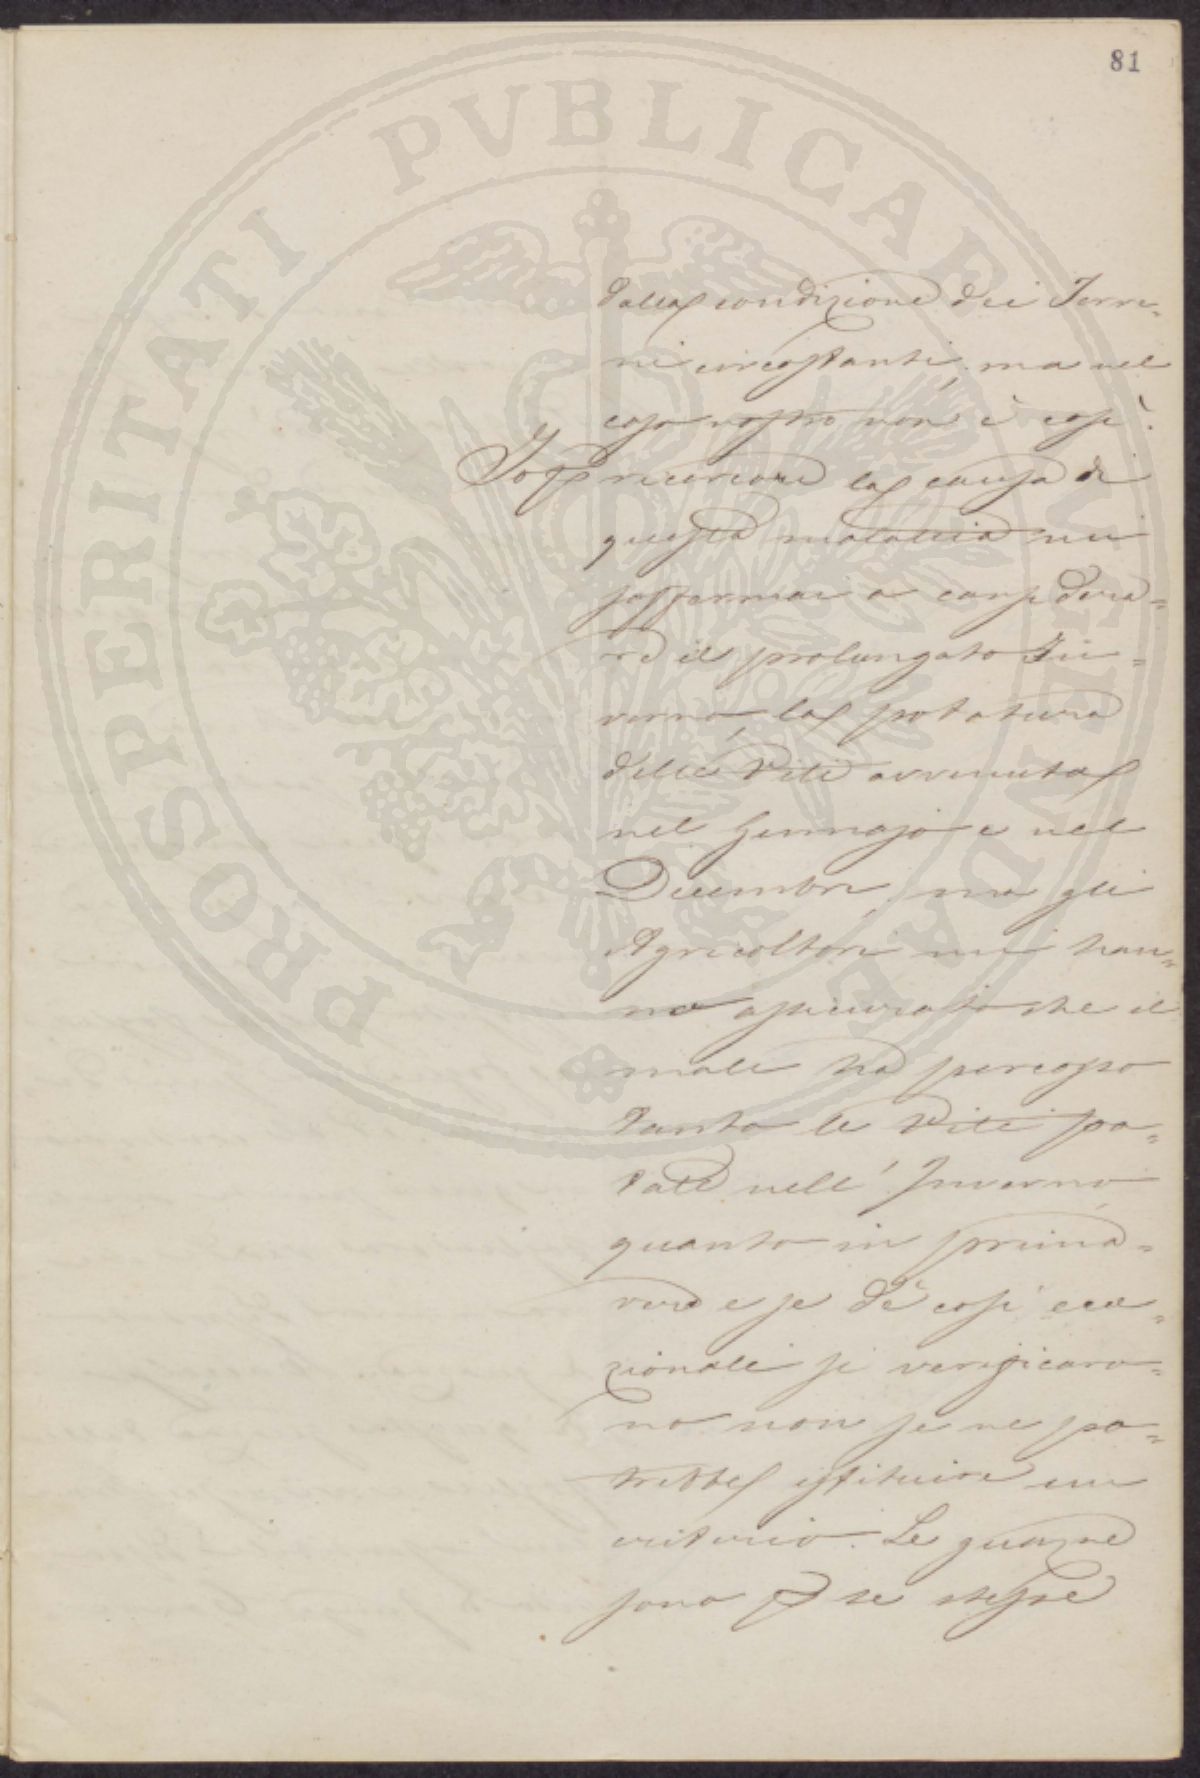 81
PROSPERITATI PVBLICAE AVGENDAE
dalla condizione dei Terre=
ni circostanti, ma nel
caso nostro non è così.
Io ricercare la causa di
questa malattia mi
soffermai a considera=
re il prolungato In=
verno, la potatura
delle Viti avvenuta
nel Gennajo e nel
Decembre, ma gli
Agricoltori mi han=
no assicurato che il
male ha percosso
tanto le Viti po=
tate nell'Inverno
quanto in prima=
vera e se dè così ecce=
zionali si verificaro=
no non se ne po=
trebbe istituire un
criterio. Le guazze
sono per se stesse